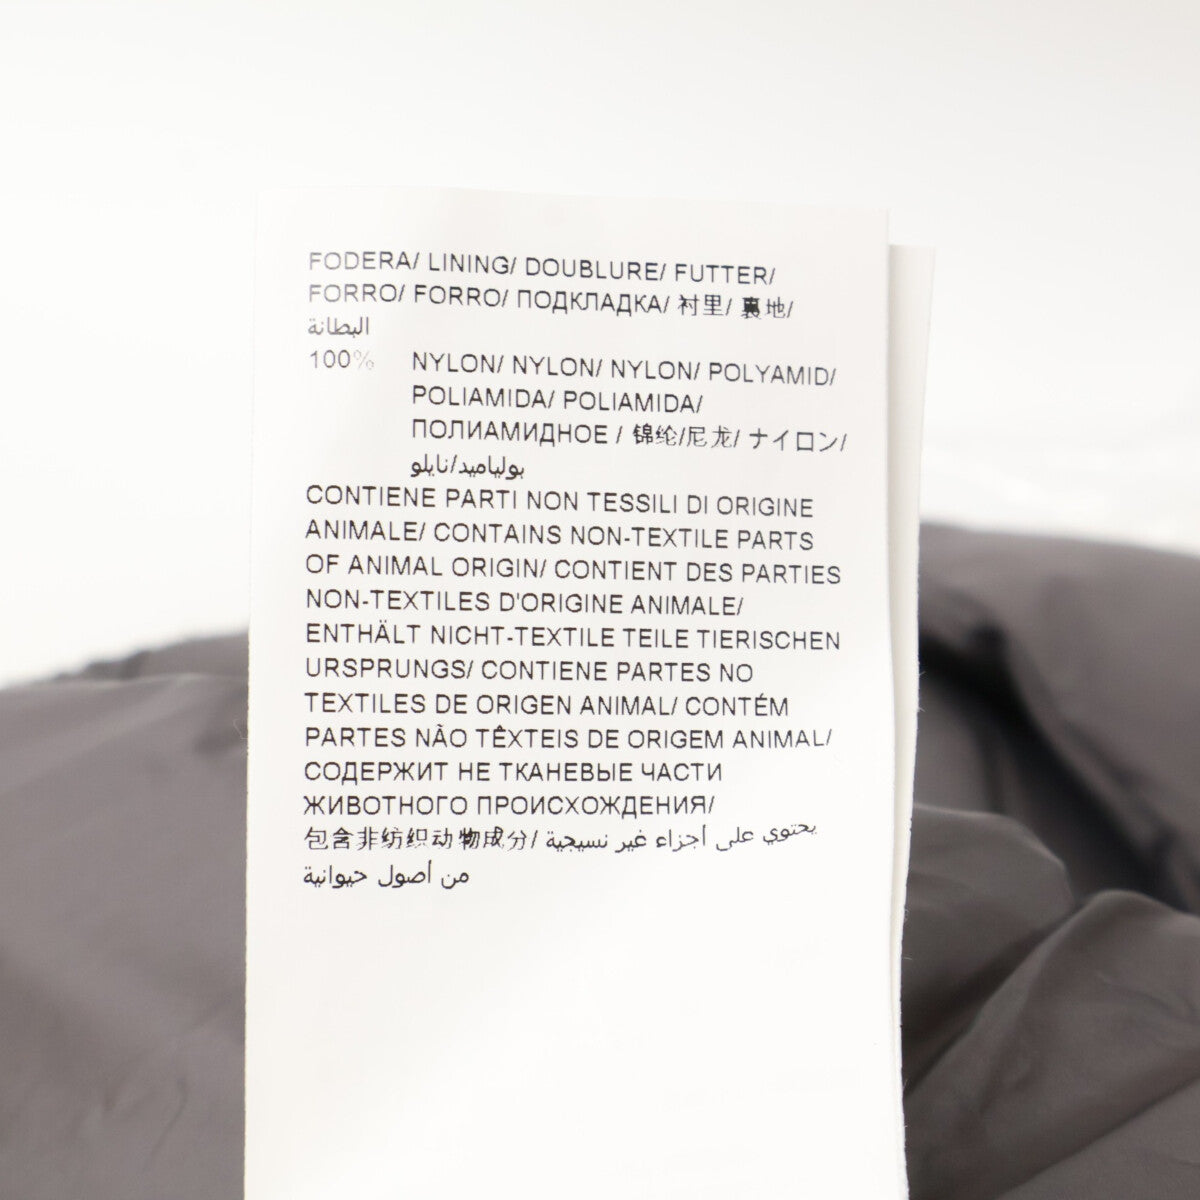 FODERA/ LINING/ DOUBLURE/ FUTTER/
FORRO/ FORRO/ ПОДКЛАДКА/ 衬里/ 裏地/
البطانة
100% NYLON/ NYLON/ NYLON/ POLYAMID/
POLIAMIDA/ POLIAMIDA/
ПОЛИАМИДНОЕ / 锦纶/尼龙/ ナイロン/
بولياميد/نايلو
CONTIENE PARTI NON TESSILI DI ORIGINE
ANIMALE/ CONTAINS NON-TEXTILE PARTS
OF ANIMAL ORIGIN/ CONTIENT DES PARTIES
NON-TEXTILES D'ORIGINE ANIMALE/
ENTHÄLT NICHT-TEXTILE TEILE TIERISCHEN
URSPRUNGS/ CONTIENE PARTES NO
TEXTILES DE ORIGEN ANIMAL/ CONTÉM
PARTES NÃO TÊXTEIS DE ORIGEM ANIMAL/
СОДЕРЖИТ НЕ ТКАНЕВЫЕ ЧАСТИ
ЖИВОТНОГО ПРОИСХОЖДЕНИЯ/
包含非纺织动物成分/ يحتوي على أجزاء غير نسيجية
من أصول حيوانية